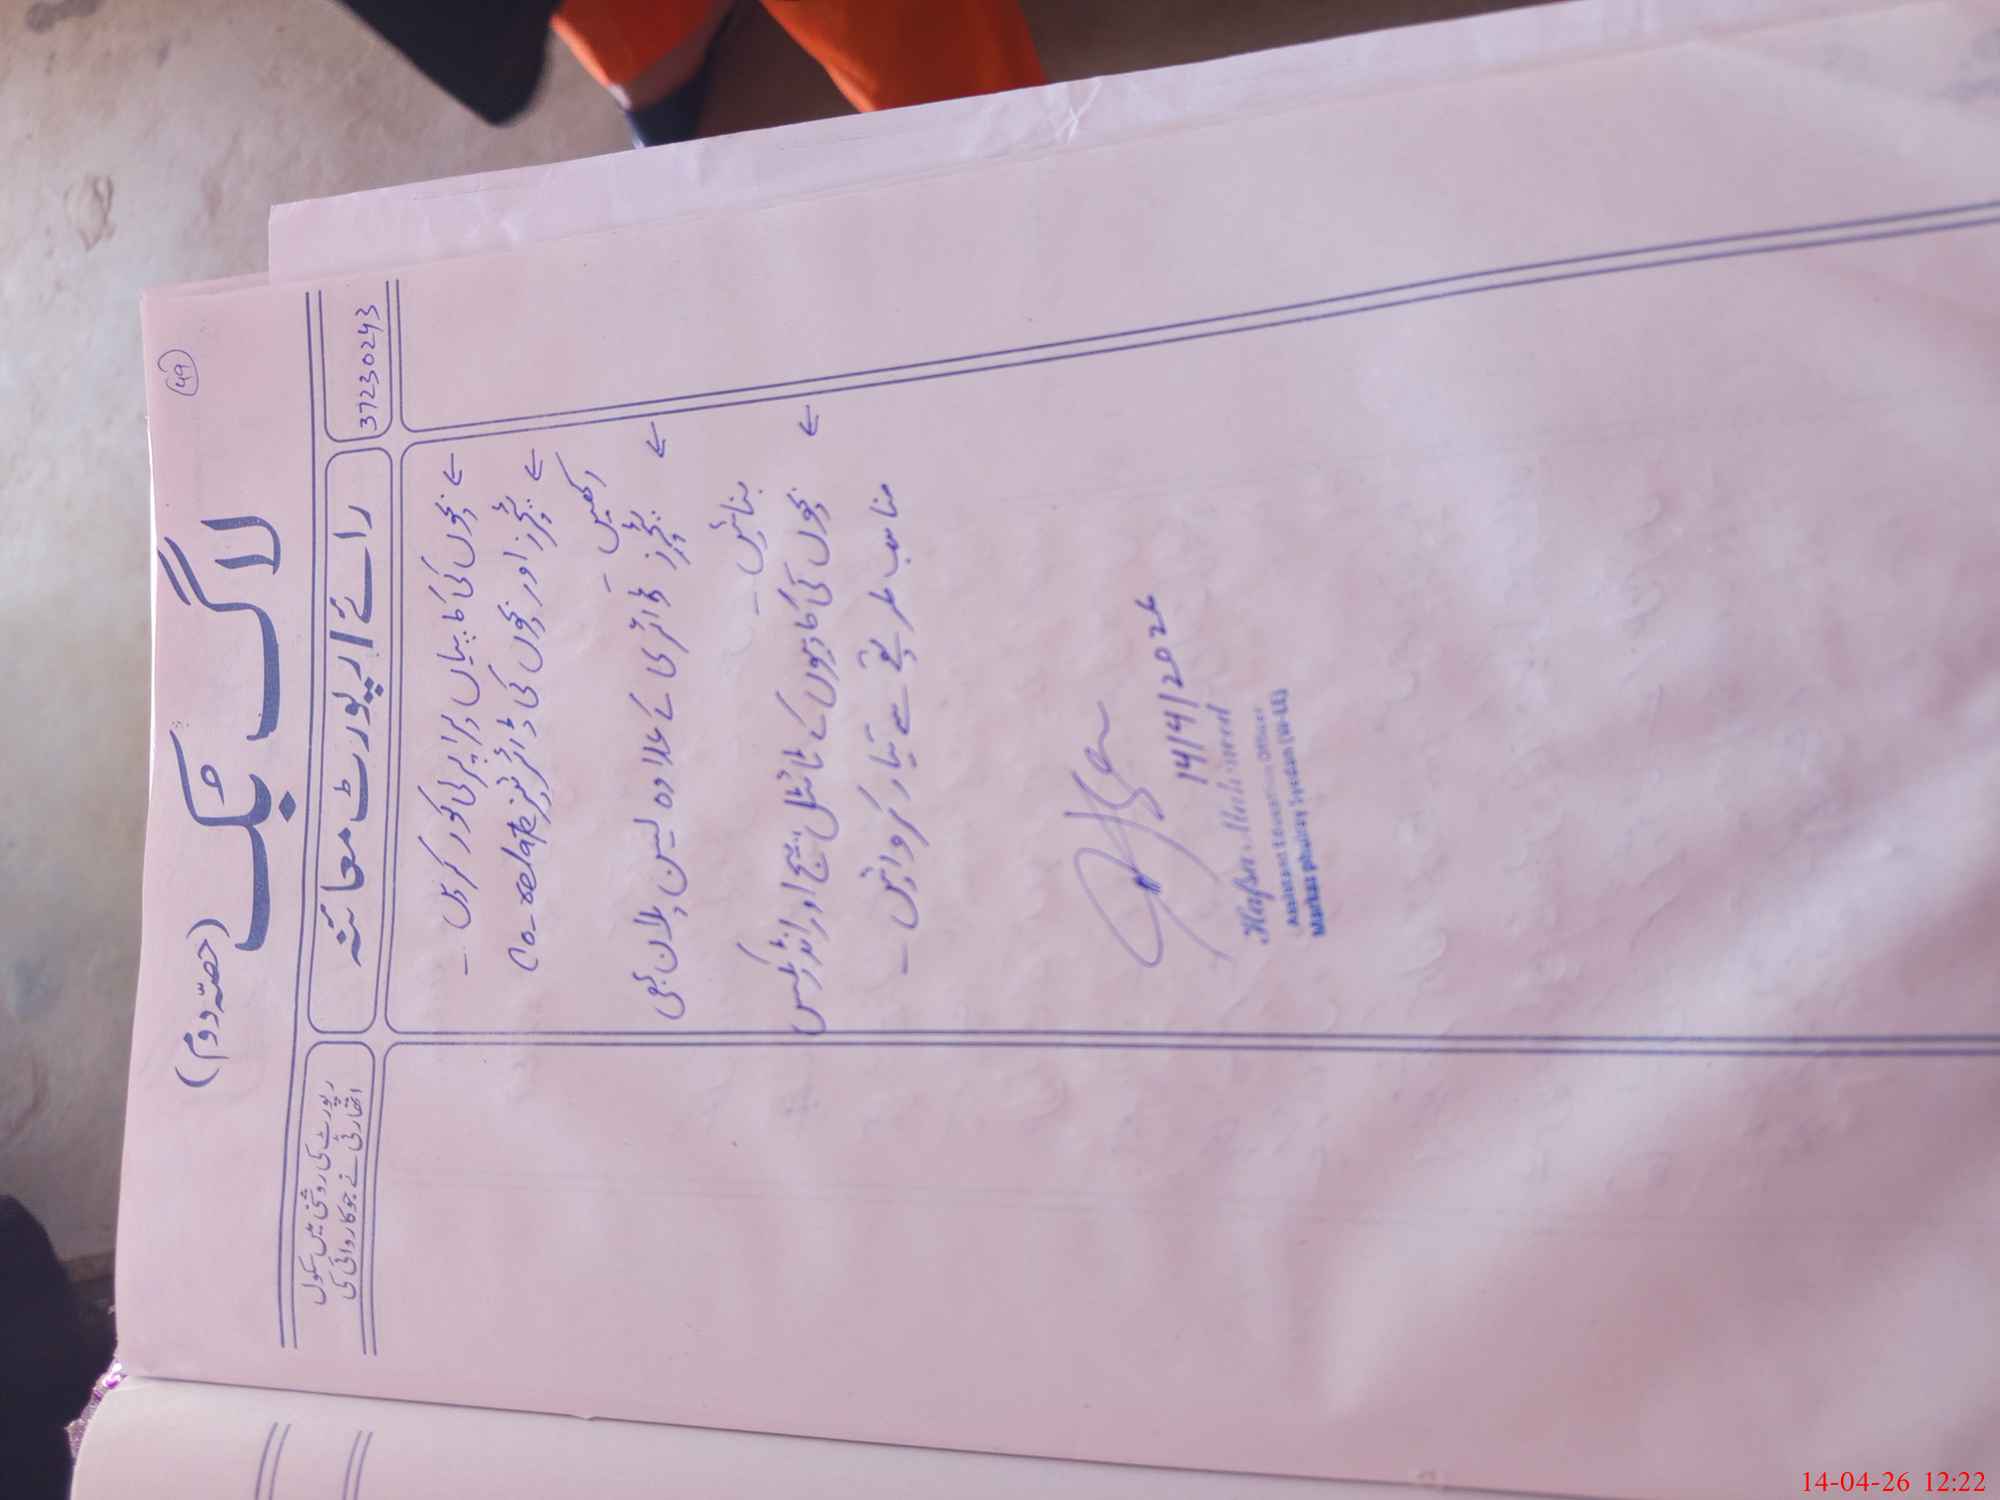 49
لاگ بک
(حصّہ دوم)
37230243
رائے / رپورٹ معائنہ
رپورٹ کی روشنی میں سکول
اتھارٹی نے جو کاروائی کی
← بچوں کی کاپیاں پراپرلی کور کریں ۔
← ٹیچرز اور بچوں کی ڈائریز Co-relate
رکھیں ۔
← ٹیچرز ڈائری کے علاوہ لیسن پلان بھی
بنائیں ۔
← بچوں کی کاپیوں کے ٹائٹل پیج اور انڈرکس
مناسب طریقے سے تیار کروائیں ۔
14/4/2026
Hafsa Mahmood
Assistant Education Officer
Markaz Phulray Syedan (W-EE)
14-04-26 12:22